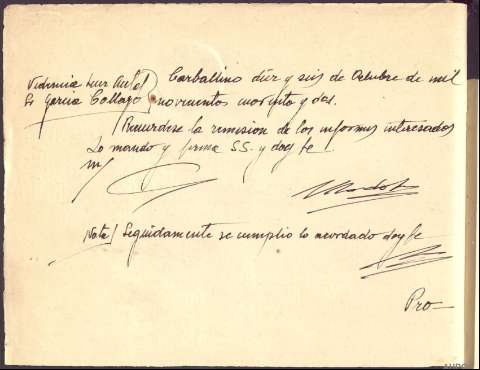 Carballino diez y seis de Octubre de mil
Sr Garcia Collazo novecientos cuarenta y dos.
Recuerdese la remision de los informes interesados
Lo mando y firma S.S. y doy fe
Nota/ Seguidamente se cumplio lo acordado doy fe
Pro—